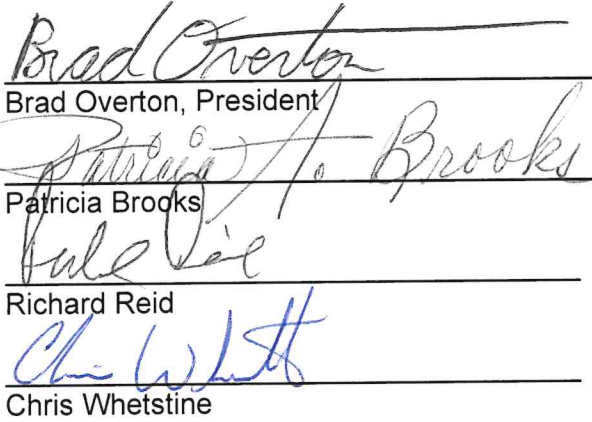 Brad Overton
Brad Overton, President
Patricia A. Brooks
Patricia Brooks
Richard Reid
Chris
Chris Whetstine